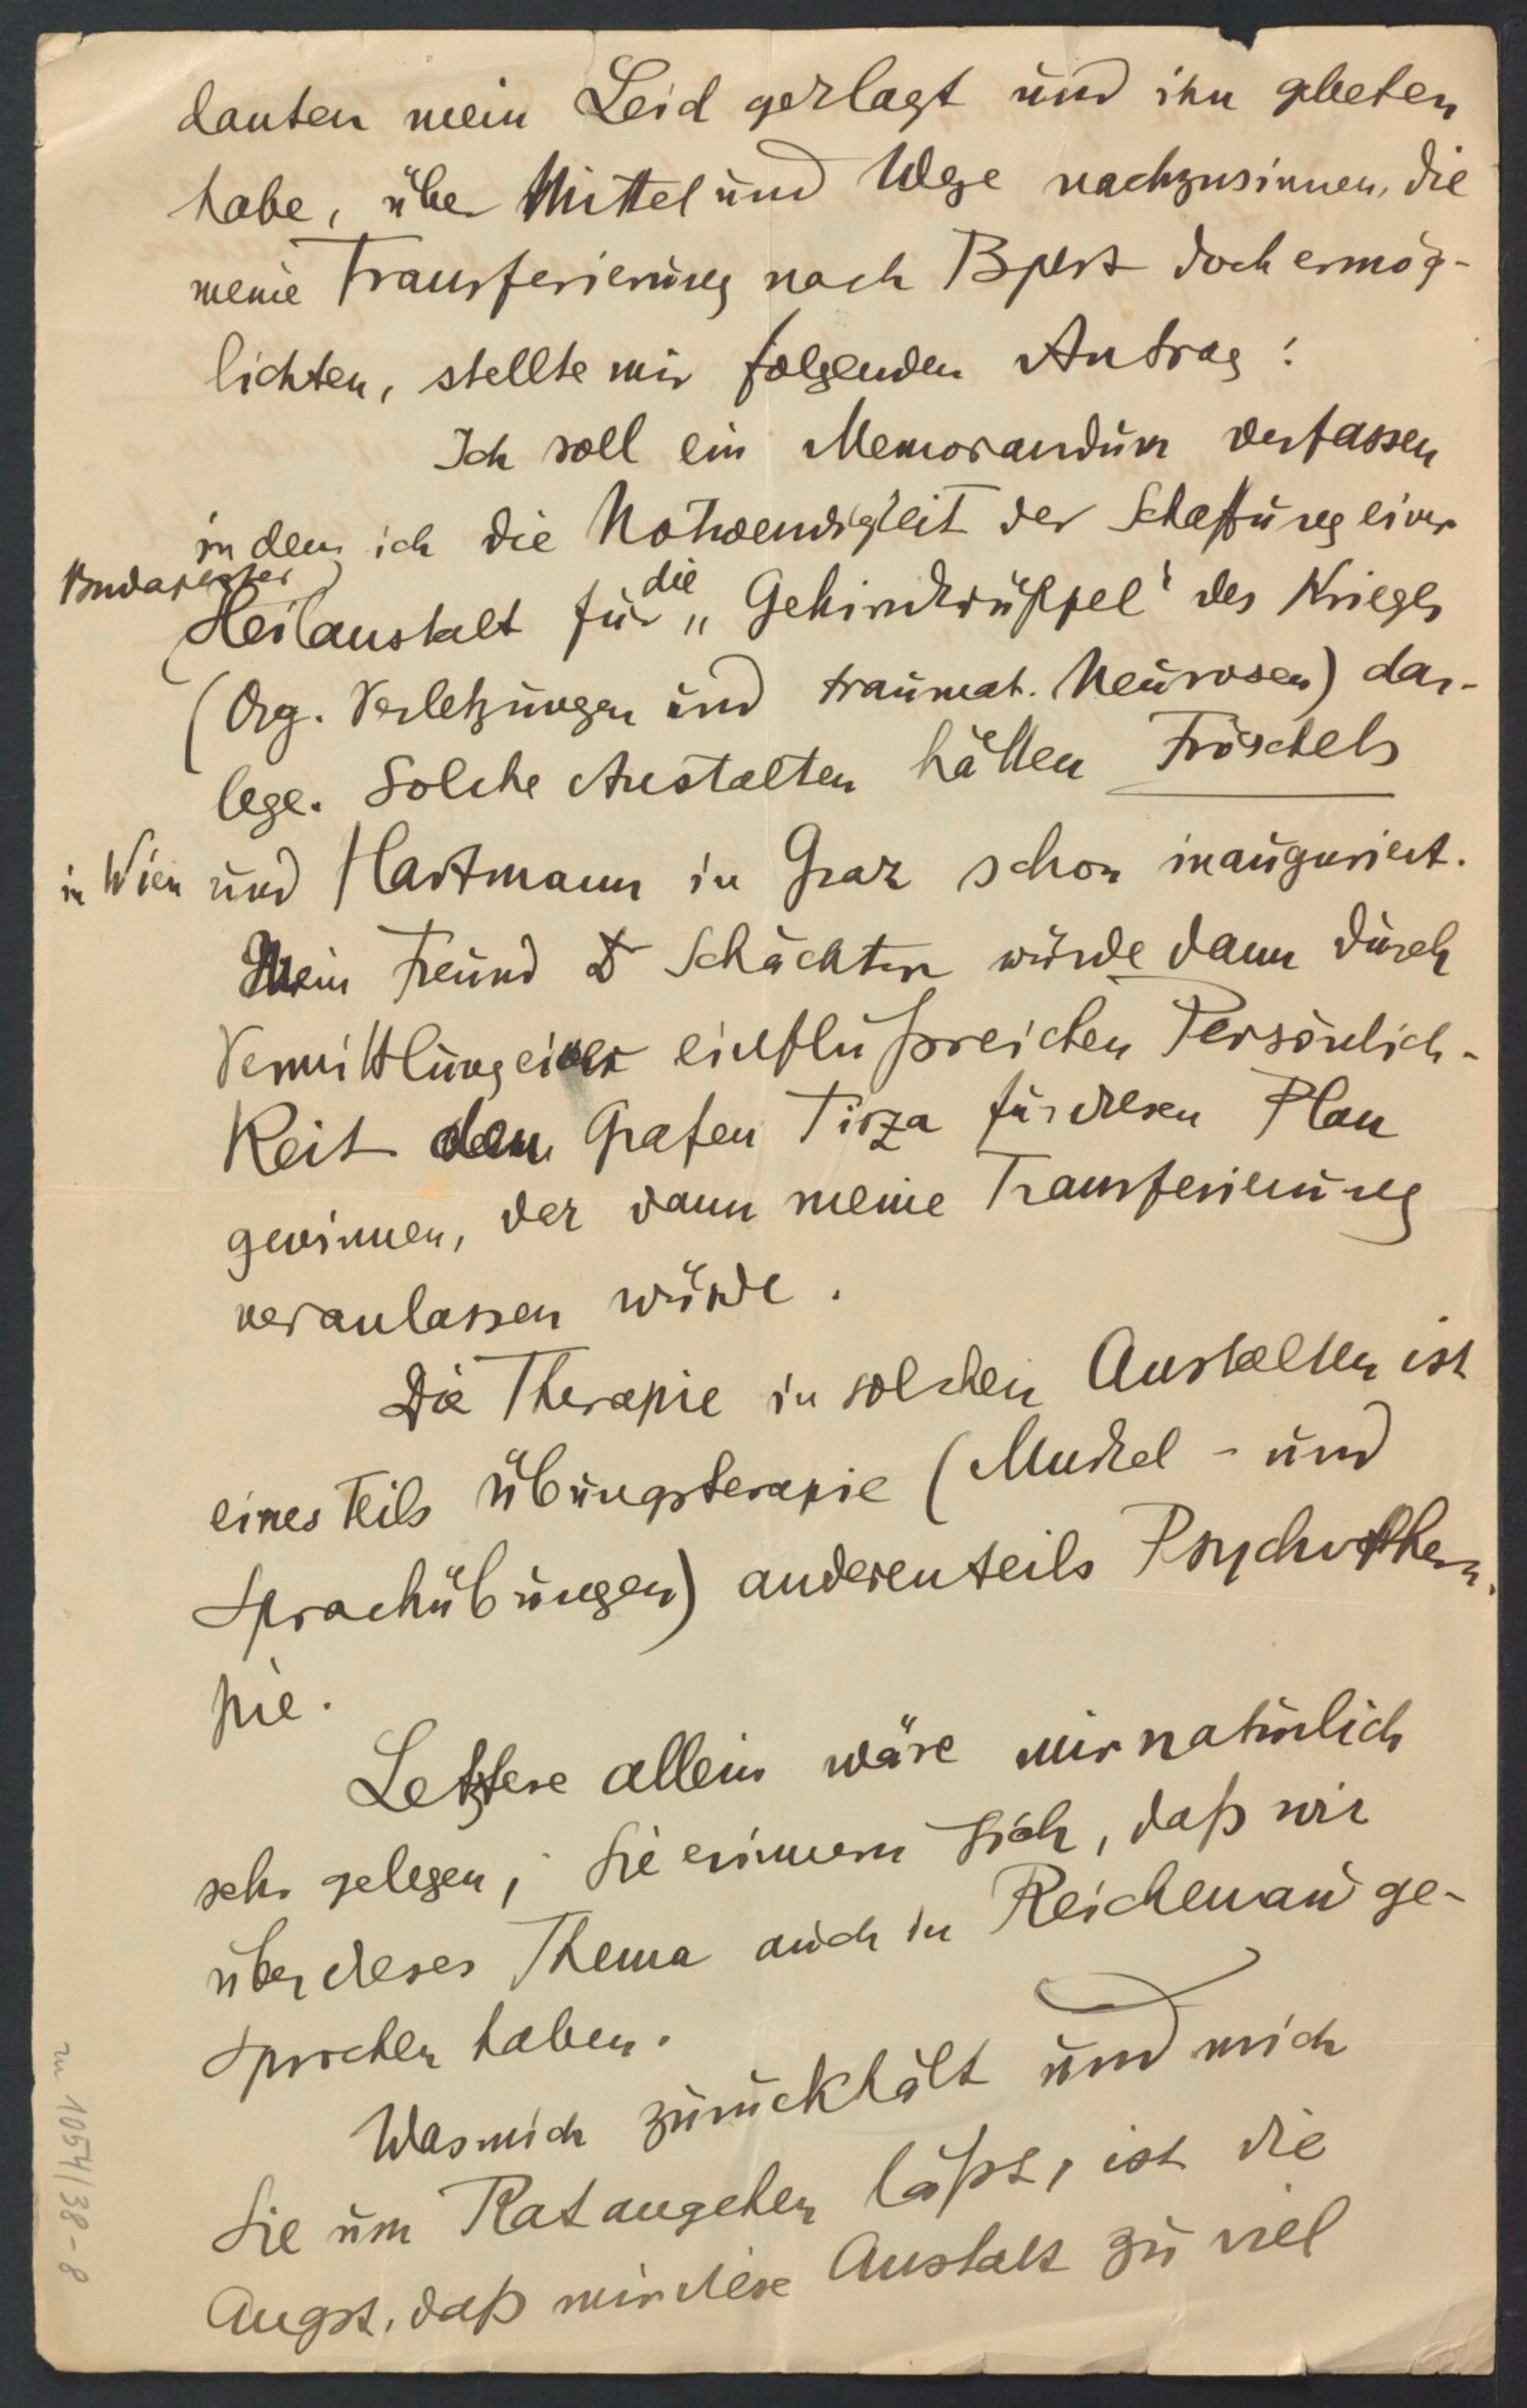 danten mein Leid geklagt und ihn gebeten
habe, über Mittel und Wege nachzusinnen, die
meine Transferierung nach Bpest doch ermög-
lichten, stellte mir folgenden Antrag:
Ich soll ein Memorandum verfassen
in dem ich die Notwendigkeit der Schaffung einer
Budapester
Heilanstalt für die „Gehirnkrüppel“ des Krieges
(Org. Verletzungen und traumat. Neurosen) dar-
lege. Solche Anstalten hätten Fröschels
in Wien und Hartmann in Graz schon inauguriert.
Mein Freund Dr Schächter würde dann durch
Vermittlung einer einflußreichen Persönlich-
keit den Grafen Tisza für diesen Plan
gewinnen, der dann meine Transferierung
veranlassen würde.
Die Therapie in solchen Anstalten ist
einesteils Übungsterapie (Muskel- und
Sprachübungen) anderenteils Psychothera-
pie.
Letztere allein wäre mir natürlich
sehr gelegen; Sie erinnern sich, daß wir
über dieses Thema auch in Reichenau ge-
sprochen haben.
Was mich zurückhält und mich
Sie um Rat angehen läßt, ist die
Angst, daß mir diese Anstalt zu viel
zu 1054/38-8